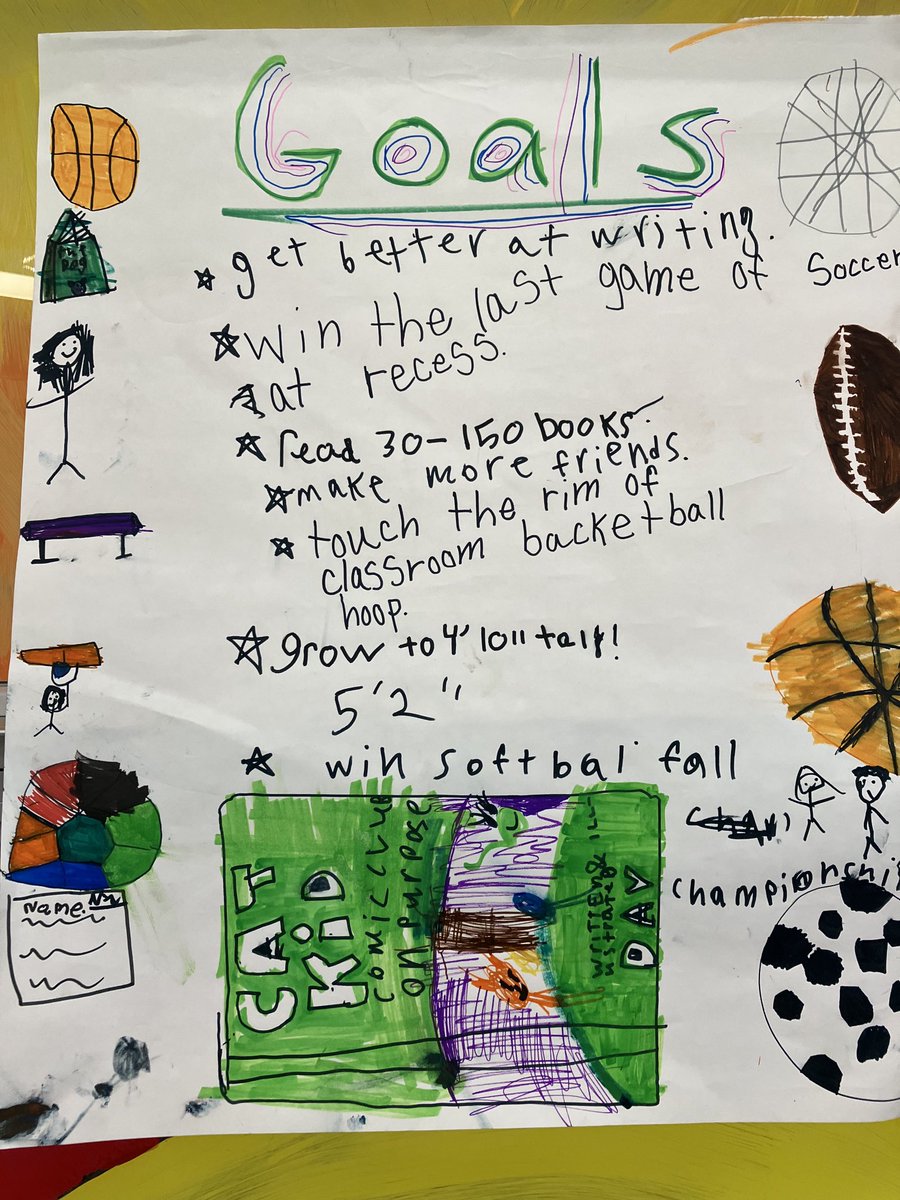 Goals
get better at writing.
win the last game of Soccer
at recess.
read 30-150 books.
make more friends.
touch the rim of
classroom backetball
hoop.
grow to 4'10" tall!
5'2"
win softbal fall
championshi
CAT
KID
comic club
on purpose
DAV
Name: